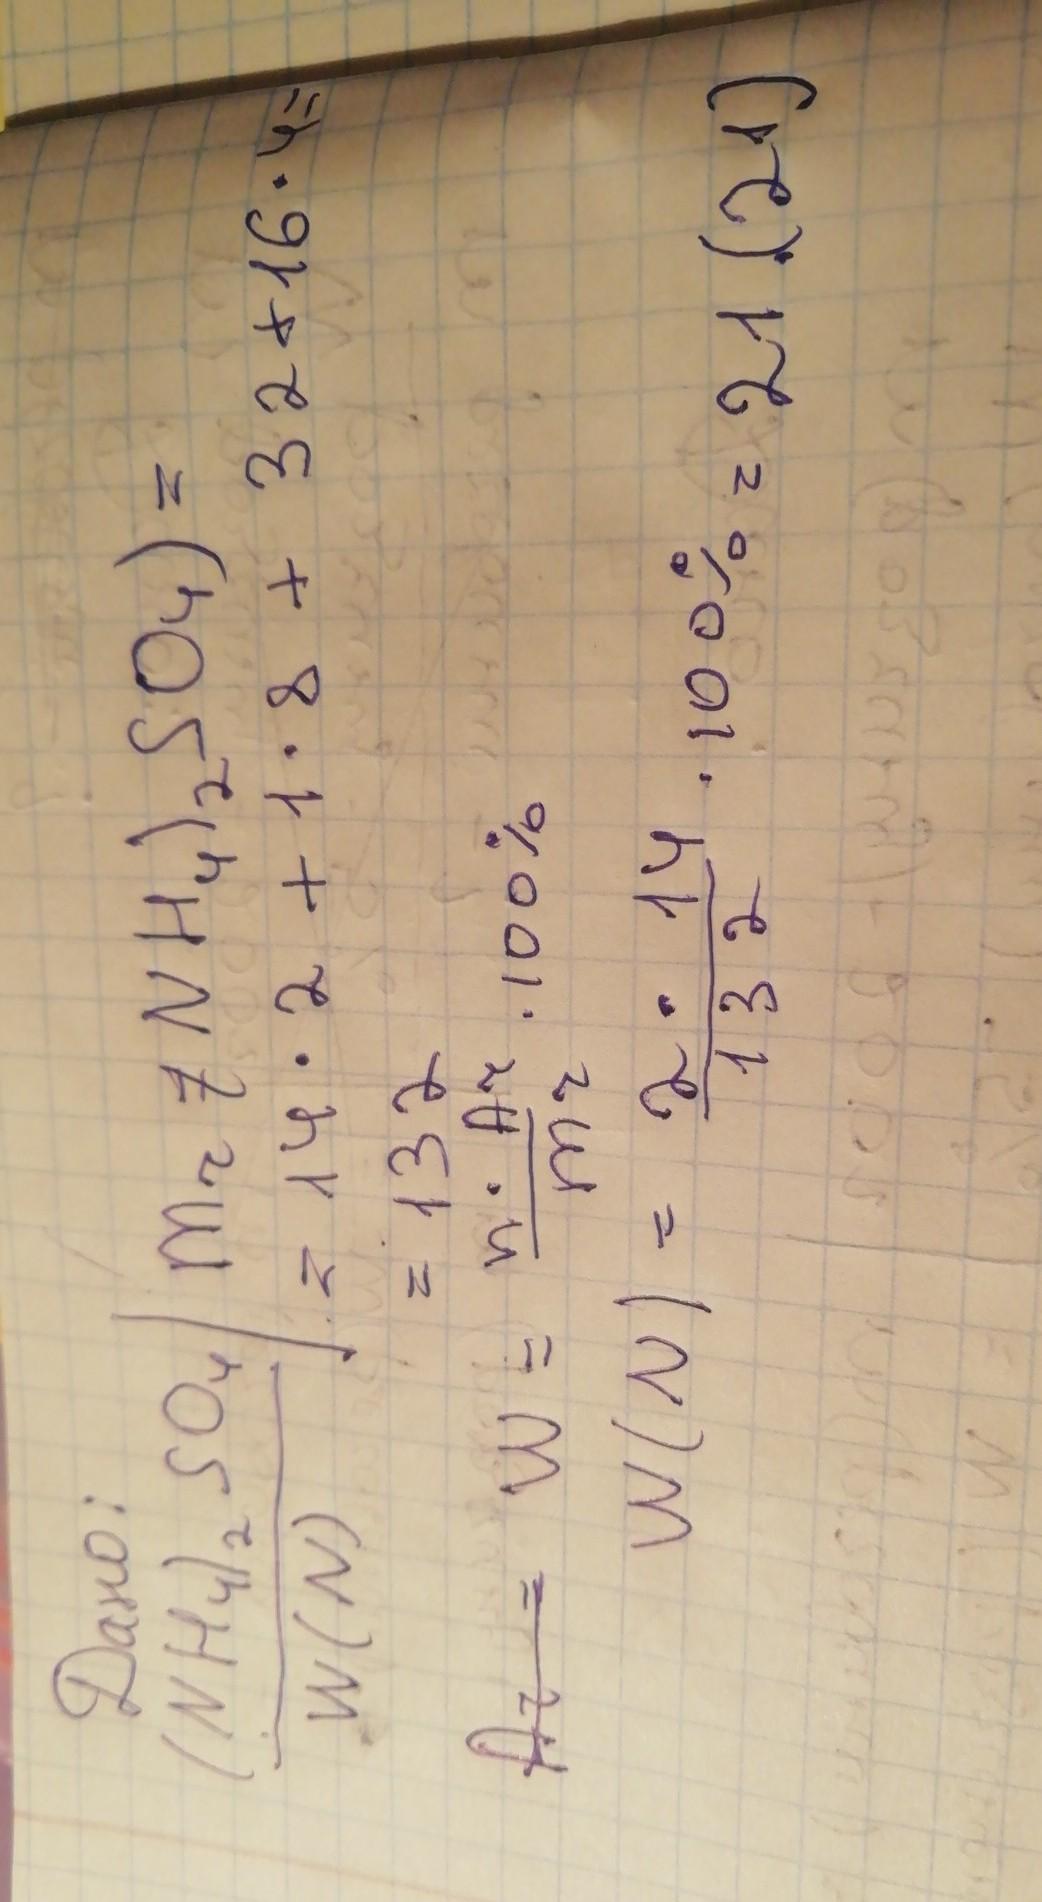 Дано:
(NH4)2SO4
W(N)
Mr (NH4)2SO4) =
= 14 · 2 + 1 · 8 + 32 + 16 · 4 =
= 132
Ar =
W = n · Ar / mr · 100%
W(N) = 2 · 14 / 132 · 100% = 21.(21)